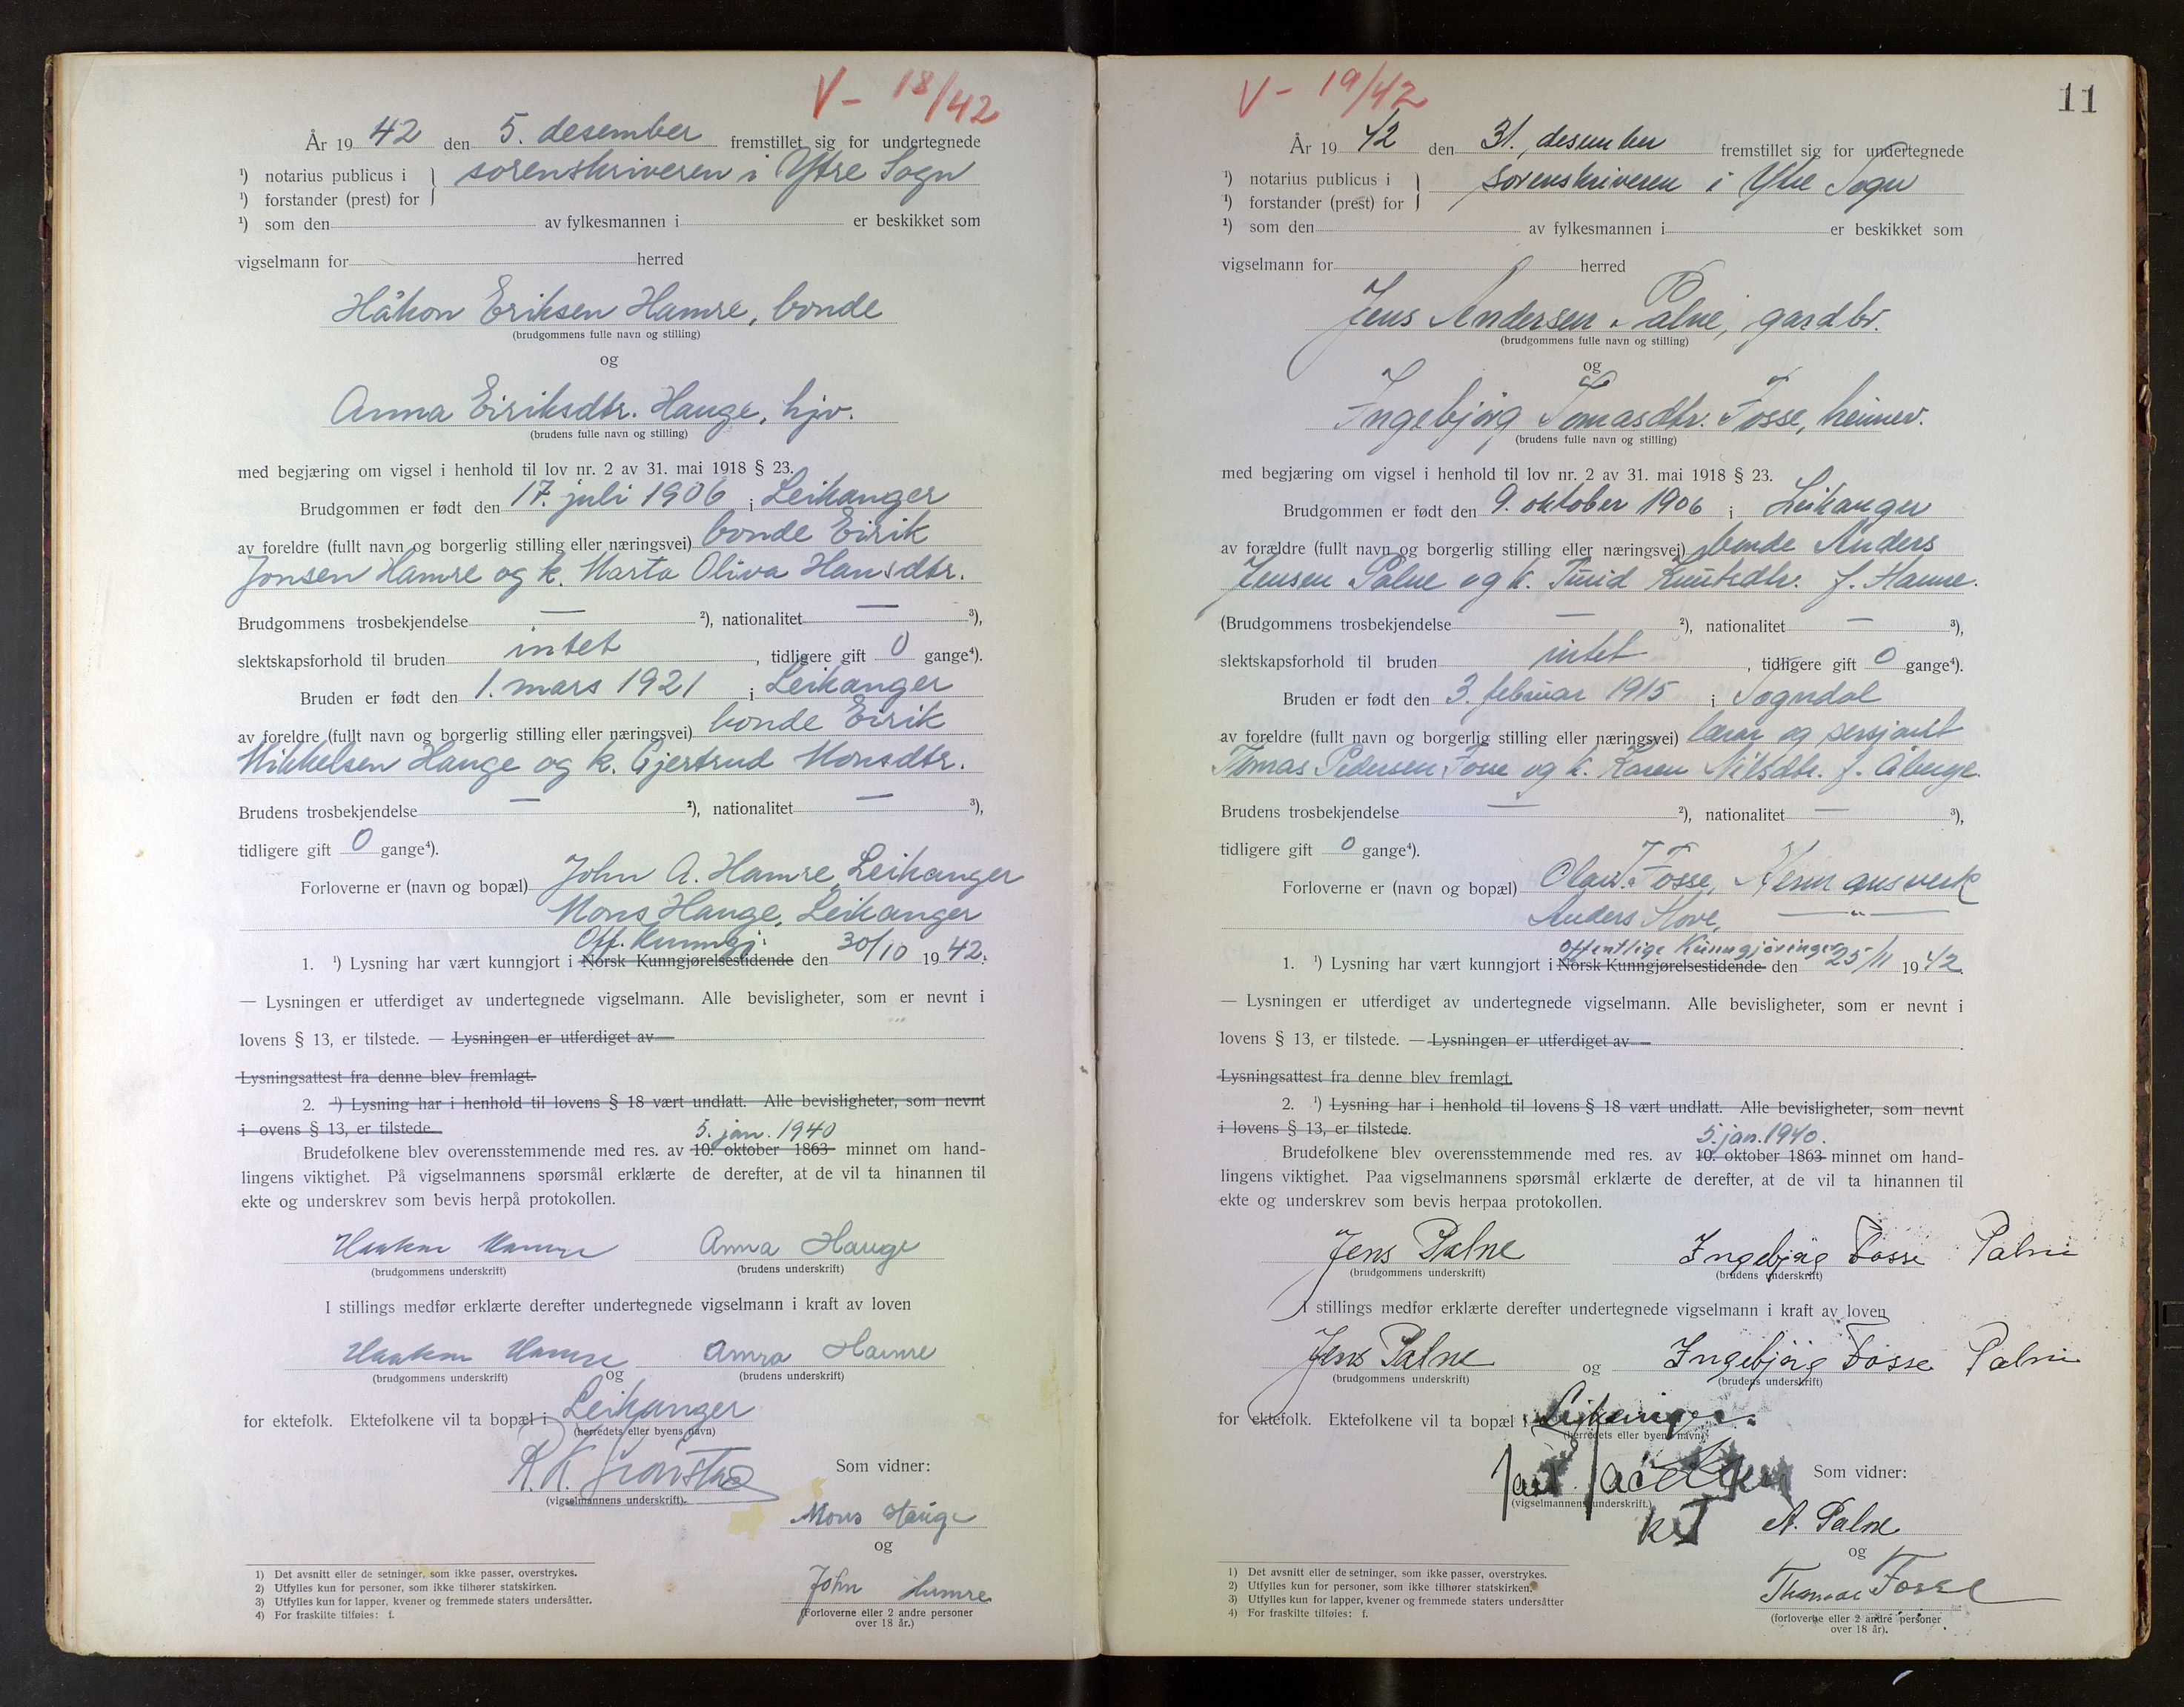 V - 18/42
År 19 42 den 5. desember fremstillet sig for undertegnede
¹) notarius publicus i } sorenskriveren i Ytre Sogn
¹) forstander (prest) for
¹) som den av fylkesmannen i er beskikket som
vigselmann for herred
Håkon Eriksen Hamre, bonde
(brudgommens fulle navn og stilling)
og
Anna Eiriksdtr. Hauge, hjv.
(brudens fulle navn og stilling)
med begjæring om vigsel i henhold til lov nr. 2 av 31. mai 1918 § 23.
Brudgommen er født den 17. juli 1906 i Leikanger
av foreldre (fullt navn og borgerlig stilling eller næringsvei) bonde Eirik
Jonsen Hamre og k. Marta Oliva Hansdtr.
Brudgommens trosbekjendelse — ²), nationalitet — ³),
slektskapsforhold til bruden intet, tidligere gift 0 gange⁴).
Bruden er født den 1. mars 1921 i Leikanger
av foreldre (fullt navn og borgerlig stilling eller næringsvei) bonde Eirik
Mikkelsen Hauge og k. Gjertrud Monsdtr.
Brudens trosbekjendelse — ²), nationalitet — ³),
tidligere gift 0 gange⁴).
Forloverne er (navn og bopæl) John A. Hamre, Leikanger
Mons Hauge, Leikanger
Off. Kunngj.
1. ¹) Lysning har vært kunngjort i Norsk Kunngjørelsestidende den 30/10 19 42.
— Lysningen er utferdiget av undertegnede vigselmann. Alle bevisligheter, som er nevnt i
lovens § 13, er tilstede. — Lysningen er utferdiget av
Lysningsattest fra denne blev fremlagt.
2. ¹) Lysning har i henhold til lovens § 18 vært undlatt. Alle bevisligheter, som nevnt
i ovens § 13, er tilstede.
5. jan. 1940
Brudefolkene blev overensstemmende med res. av 10. oktober 1863 minnet om hand-
lingens viktighet. På vigselmannens spørsmål erklærte de derefter, at de vil ta hinannen til
ekte og underskrev som bevis herpå protokollen.
Haakon Hamre Anna Hauge
(brudgommens underskrift) (brudens underskrift)
I stillings medfør erklærte derefter undertegnede vigselmann i kraft av loven
Haakon Hamre og Anna Hamre
(brudgommens underskrift) (brudens underskrift)
for ektefolk. Ektefolkene vil ta bopæl i Leikanger
(herredets eller byens navn)
R. K.
Som vidner:
(vigselmannens underskrift).
Mons Hauge
og
John Hamre
(Forloverne eller 2 andre personer
over 18 år.)
1) Det avsnitt eller de setninger, som ikke passer, overstrykes.
2) Utfylles kun for personer, som ikke tilhører statskirken.
3) Utfylles kun for lapper, kvener og fremmede staters undersåtter.
4) For fraskilte tilføies: f.
V - 19/42
11
År 19 42 den 31. desember fremstillet sig for undertegnede
¹) notarius publicus i } sorenskriveren i Ytre Sogn
¹) forstander (prest) for
¹) som den av fylkesmannen i er beskikket som
vigselmann for herred
Jens Andersen Palne, gardbr.
(brudgommens fulle navn og stilling)
og
Ingebjørg Tomasdtr. Fosse, heimev.
(brudens fulle navn og stilling)
med begjæring om vigsel i henhold til lov nr. 2 av 31. mai 1918 § 23.
Brudgommen er født den 9. oktober 1906 i Leikanger
av forældre (fullt navn og borgerlig stilling eller næringsvei) bonde Anders
Jensen Palne og k. Turid Knutsdtr. f. Hamre.
(Brudgommens trosbekjendelse — ²), nationalitet — ³),
slektskapsforhold til bruden intet, tidligere gift 0 gange⁴).
Bruden er født den 3. februar 1915 i Sogndal
av foreldre (fullt navn og borgerlig stilling eller næringsvei) lærar og sersjant
Tomas Pedersen Fosse og k. Karen Nilsdtr. f. Åberge.
Brudens trosbekjendelse — ²), nationalitet — ³),
tidligere gift 0 gange⁴).
Forloverne er (navn og bopæl) Olav T. Fosse, Hermansverk
Anders Hove, — " —
Offentlige Kunngjøringer
1. ¹) Lysning har vært kunngjort i Norsk Kunngjørelsestidende den 25/11 19 42.
— Lysningen er utferdiget av undertegnede vigselmann. Alle bevisligheter, som er nevnt i
lovens § 13, er tilstede. — Lysningen er utferdiget av —
Lysningsattest fra denne blev fremlagt.
2. ¹) Lysning har i henhold til lovens § 18 vært undlatt. Alle bevisligheter, som nevnt
i lovens § 13, er tilstede.
5. jan. 1940.
Brudefolkene blev overensstemmende med res. av 10. oktober 1863 minnet om hand-
lingens viktighet. Paa vigselmannens spørsmål erklærte de derefter, at de vil ta hinannen til
ekte og underskrev som bevis herpaa protokollen.
Jens Palne Ingebjørg Fosse Palne
(brudgommens underskrift) (brudens underskrift)
I stillings medfør erklærte derefter undertegnede vigselmann i kraft av loven
Jens Palne og Ingebjørg Fosse Palne
(brudgommens underskrift) (brudens underskrift)
for ektefolk. Ektefolkene vil ta bopæl i Leikanger.
(herredets eller byens navn)
Som vidner:
(vigselmannens underskrift.)
A. Palne
og
Thomas Fosse
(forloverne eller 2 andre personer
over 18 år).
1) Det avsnitt eller de setninger, som ikke passer, overstrykes.
2) Utfylles kun for personer, som ikke tilhører statskirken.
3) Utfylles kun for lapper, kvener og fremmede staters undersåtter
4) For fraskilte tilføies: f.